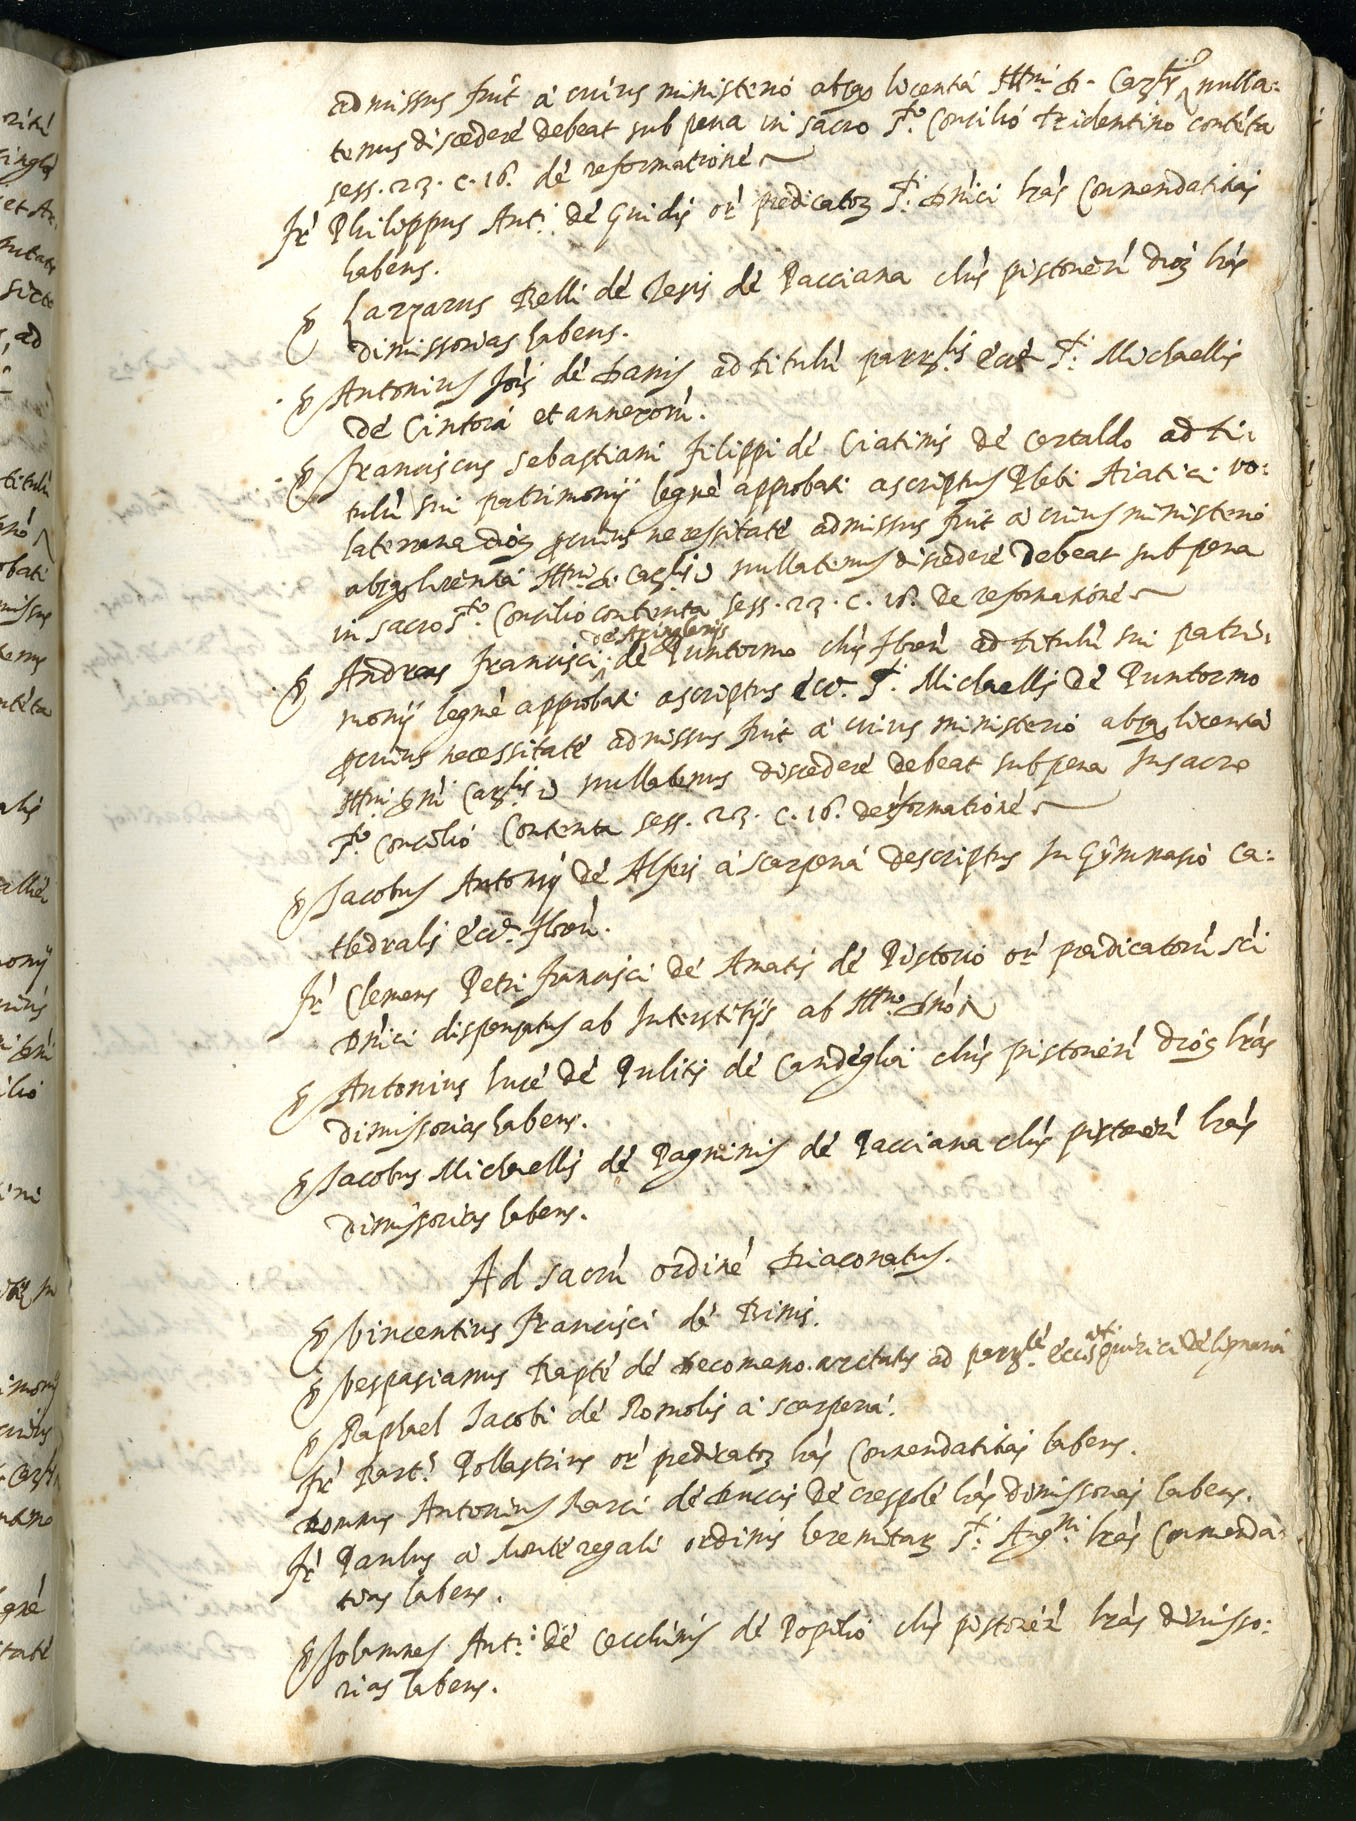 admissus fuit à cuius ministerio absq3 licentia Ill.mi D. Car.lis nulla:
tenus discedere debeat sub pena in sacro S.to Consilio tridentino conteta
sess. 23. c. 16. de reformatione
fr Philippus Ant.i de Guidis or predicatoʒ S.ti Dnici lras Commendatitias
habens.
Lazzarus Relli de de Pacciana clus pistorien dioc lras
dimissorias habens.
Antonius Jois de Danis ad titulu parr.lis ecce S.ti Michaellis
de Cintoia et annexoru.
Franciscus Sebastiani filippi de Ciatinis de Certaldo ad ti:
tulu sui patrimonij legne approbati ascriptus Plebi Aiatici vo:
laterrane dioc procuius necessitate admissus fuit à cuius ministerio
absq3 licentia Ill.mi D. Car.lis nullatenus discedere debeat sub pena
in sacro S.to Consilio contenta sess. 23. c. 16. de reformatione
de
Andreas Francisci de Puntormo clus floren ad titulu sui patri:
monij legne approbati ascriptus ecce. S.ti Michaellis de Puntormo
procuius necessitate admissus fuit à cuius ministerio absq3 licentia
Ill.mi Dni Car.lis nullatenus discedere debeat sub pena In sacro
S.to Concilio Contenta sess. 23. c. 16. de reformatione
Jacobus Antonij de Alferis à scarperia descriptus In Gymnasio Ca:
thedralis ecce. floren.
fr Clemens Petri francisci de Amatis de Pistorio or predicatoru sci
Dnici dispensatus ab Interstitijs ab Ill.mo Dno
Antonius luce de Pulitis de Candeglia clus pistorien dioc lras
dimissorias habens.
Jacobus Michaellis de Pagninis de Pacciana clus pistorien lras
dimissorias habens.
Ad sacru ordine Diaconatus.
Vincentius Francisci de Binis.
Vespasianus Bapte de Decomano. arctatus ad parr.le eccis s.ti Quirici de
Raphael Jacobi de Romolis à scarperia.
fr Bart.s Pollastrius or predicatoʒ lras Commendatitias habens.
Domnus Antonius Marci de Duccis de crespole lras dimissorias habens.
fr Paulus à Monteregali ordinis heremitaʒ S.ti Aug.ni lras Commenda:
tias habens.
Johannes Ant.i de Cecchinis de Popilio clus pistorien lras dimisso:
rias habens.